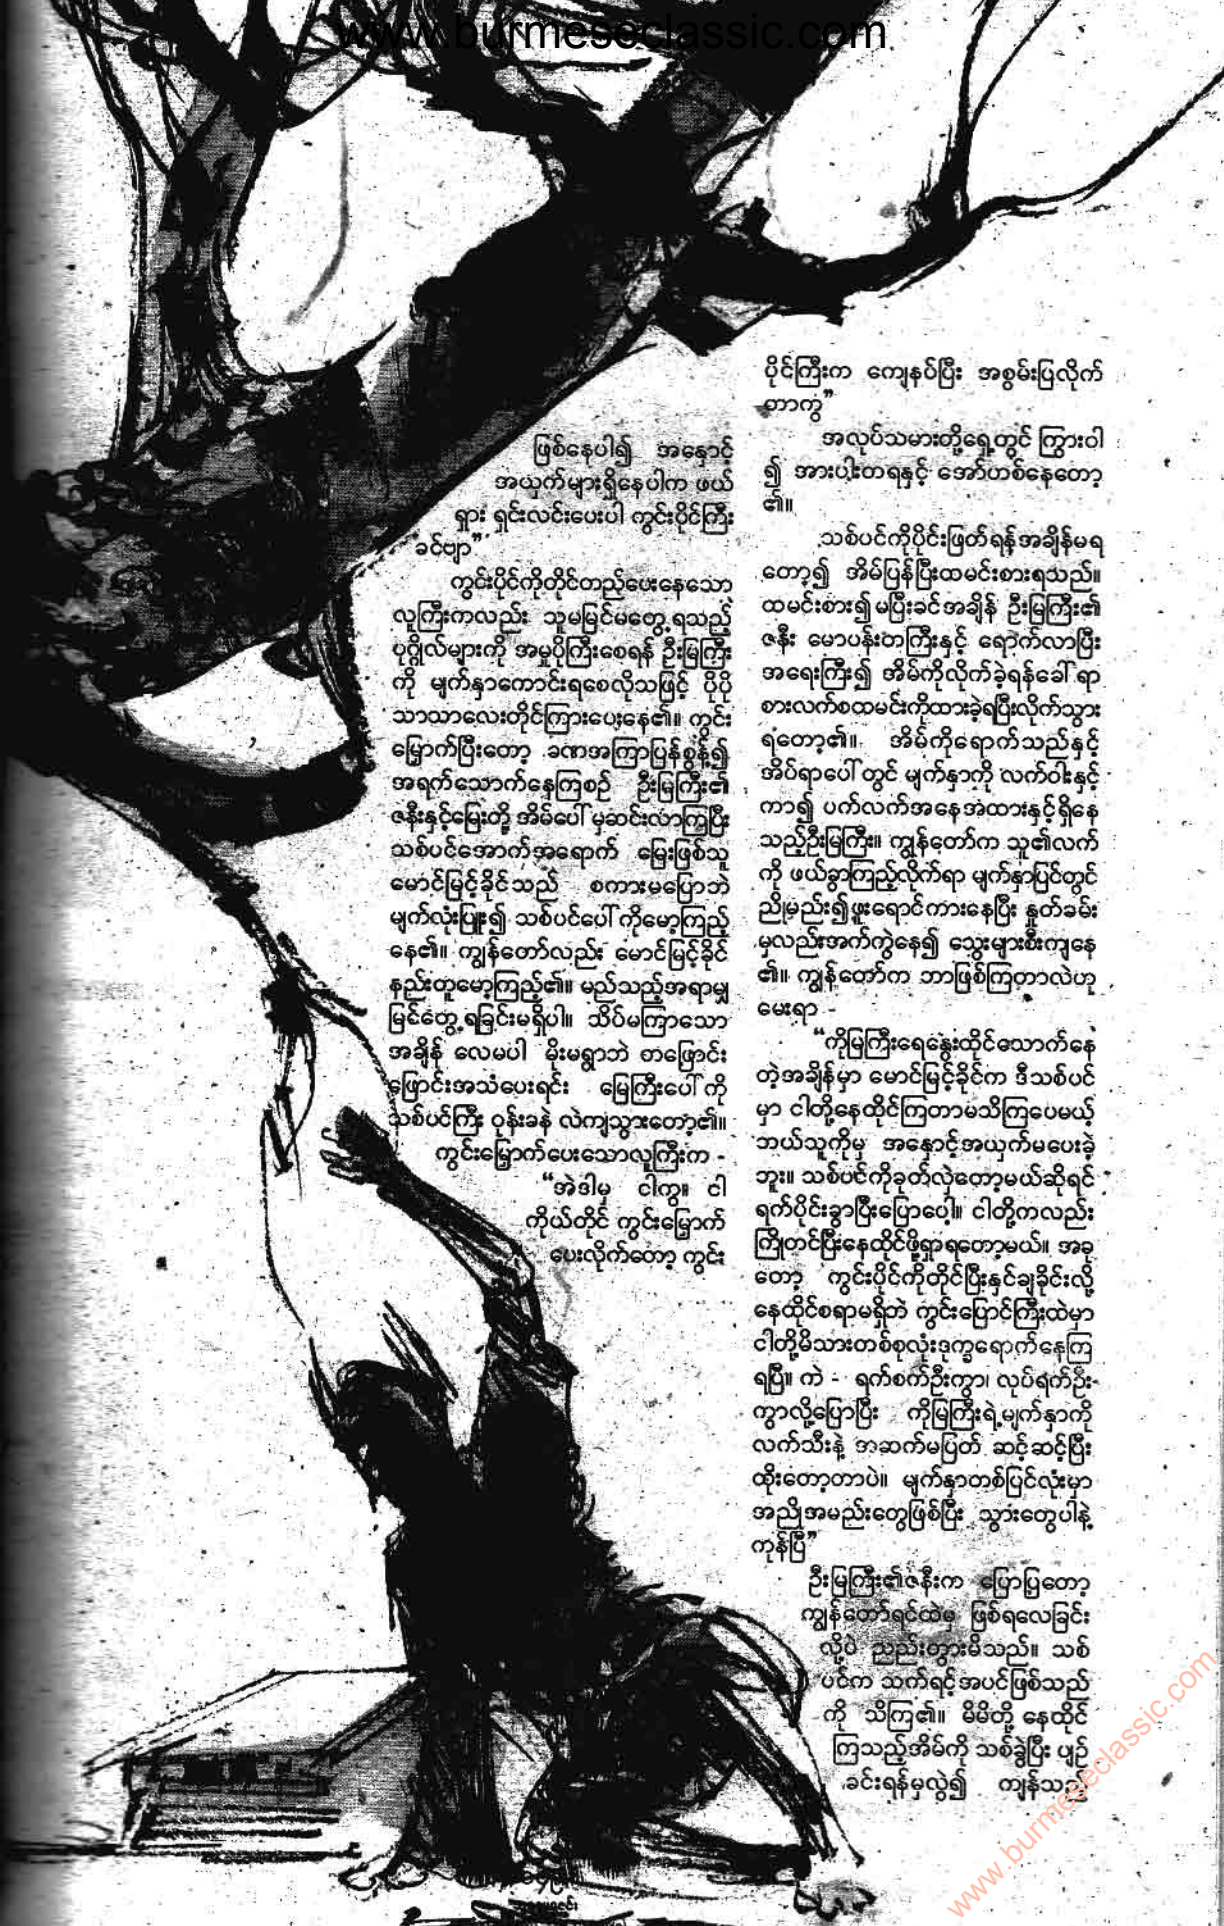 www.burmeseclassic.com
ဖြစ်နေပါ၍ အနှောင့်
အယှက်များရှိနေပါက ဖယ်
ရှား ရှင်းလင်းပေးပါ ကွင်းပိုင်ကြီး
ခင်ဗျာ”
ကွင်းပိုင်ကိုတိုင်တည်ပေးနေသော
လူကြီးကလည်း သူမမြင်မတွေ့ရသည့်
ပုဂ္ဂိုလ်များကို အမှုပိုကြီးစေရန် ဦးမြကြီး
ကို မျက်နှာကောင်းရစေလိုသဖြင့် ပိုပို
သာသာလေးတိုင်ကြားပေးနေ၏။ ကွင်း
မြှောက်ပြီးတော့ ခဏအကြာပြန်စွန့်၍
အရက်သောက်နေကြစဉ် ဦးမြကြီး၏
ဇနီးနှင့်မြေးတို့ အိမ်ပေါ်မှဆင်းလာကြပြီး
သစ်ပင်အောက်အရောက် မြေးဖြစ်သူ
မောင်မြင့်ခိုင်သည် စကားမပြောဘဲ
မျက်လုံးပြူး၍ သစ်ပင်ပေါ်ကိုမော့ကြည့်
နေ၏။ ကျွန်တော်လည်း မောင်မြင့်ခိုင်
နည်းတူမော့ကြည့်၏။ မည်သည့်အရာမျှ
မြင်တွေ့ရခြင်းမရှိပါ။ သိပ်မကြာသော
အချိန် လေမပါ မိုးမရွာဘဲ တဖြောင်း
ဖြောင်းအသံပေးရင်း မြေကြီးပေါ်ကို
သစ်ပင်ကြီး ဝုန်းခနဲ လဲကျသွားတော့၏။
ကွင်းမြှောက်ပေးသောလူကြီးက -
“အဲဒါမှ ငါကွ။ ငါ
ကိုယ်တိုင် ကွင်းမြှောက်
ပေးလိုက်တော့ ကွင်း
ပိုင်ကြီးက ကျေနပ်ပြီး အစွမ်းပြလိုက်
တာကွ”
အလုပ်သမားတို့ရှေ့တွင် ကြွားဝါ
၍ အားပါးတရနှင့် အော်ဟစ်နေတော့
၏။
သစ်ပင်ကိုပိုင်းဖြတ်ရန်အချိန်မရ
တော့၍ အိမ်ပြန်ပြီးထမင်းစားရသည်။
ထမင်းစား၍မပြီးခင်အချိန် ဦးမြကြီး၏
ဇနီး မောပန်းတကြီးနှင့် ရောက်လာပြီး
အရေးကြီး၍ အိမ်ကိုလိုက်ခဲ့ရန်ခေါ်ရာ
စားလက်စထမင်းကိုထားခဲ့ရပြီးလိုက်သွား
ရတော့၏။ အိမ်ကိုရောက်သည်နှင့်
အိပ်ရာပေါ်တွင် မျက်နှာကို လက်ဝါးနှင့်
ကာ၍ ပက်လက်အနေအထားနှင့်ရှိနေ
သည့်ဦးမြကြီး။ ကျွန်တော်က သူ၏လက်
ကို ဖယ်ခွာကြည့်လိုက်ရာ မျက်နှာပြင်တွင်
ညိုမည်း၍ဖူးရောင်ကားနေပြီး နှုတ်ခမ်း
မှလည်းအက်ကွဲနေ၍ သွေးများစီးကျနေ
၏။ ကျွန်တော်က ဘာဖြစ်ကြတာလဲဟု
မေးရာ -
“ကိုမြကြီးရေနွေးထိုင်သောက်နေ
တဲ့အချိန်မှာ မောင်မြင့်ခိုင်က ဒီသစ်ပင်
မှာ ငါတို့နေထိုင်ကြတာမသိကြပေမယ့်
ဘယ်သူကိုမှ အနှောင့်အယှက်မပေးခဲ့
ဘူး။ သစ်ပင်ကိုခုတ်လှဲတော့မယ်ဆိုရင်
ရက်ပိုင်းခွာပြီးပြောပေါ့။ ငါတို့ကလည်း
ကြိုတင်ပြီးနေထိုင်ဖို့ရှာရတော့မယ်။ အခု
တော့ ကွင်းပိုင်ကိုတိုင်ပြီးနှင်ချခိုင်းလို့
နေထိုင်စရာမရှိဘဲ ကွင်းပြောင်ကြီးထဲမှာ
ငါတို့မိသားတစ်စုလုံးဒုက္ခရောက်နေကြ
ရပြီ။ ကဲ - ရက်စက်ဦးကွာ၊ လုပ်ရက်ဦး
ကွာလို့ပြောပြီး ကိုမြကြီးရဲ့မျက်နှာကို
လက်သီးနဲ့ အဆက်မပြတ် ဆင့်ဆင့်ပြီး
ထိုးတော့တာပဲ။ မျက်နှာတစ်ပြင်လုံးမှာ
အညိုအမည်းတွေဖြစ်ပြီး သွားတွေပါနဲ့
ကုန်ပြီ”
ဦးမြကြီး၏ဇနီးက ပြောပြတော့
ကျွန်တော်ရင်ထဲမှ ဖြစ်ရလေခြင်း
လို့ပဲ ညည်းတွားမိသည်။ သစ်
ပင်က သက်ရင့်အပင်ဖြစ်သည်
ကို သိကြ၏။ မိမိတို့ နေထိုင်
ကြသည့်အိမ်ကို သစ်ခွဲပြီး ပျဉ်
ခင်းရန်မှလွဲ၍ ကျန်သည့်
www.burmeseclassic.com